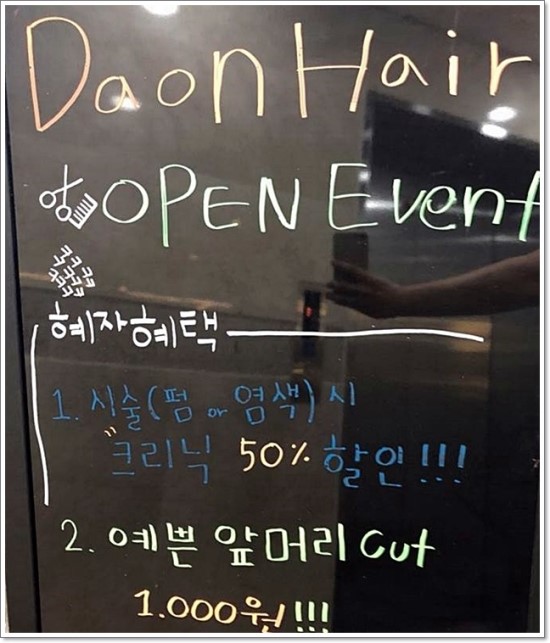 Daon Hair
OPEN Event
ㅋㅋㅋ
ㅋㅋㅋㅋ
ㅋㅋㅋㅋ
ㅋㅋㅋ
혜자혜택
1. 시술(펌 or 염색) 시
"크리닉 50% 할인!!!
2. 예쁜 앞머리 Cut
1.000원!!!